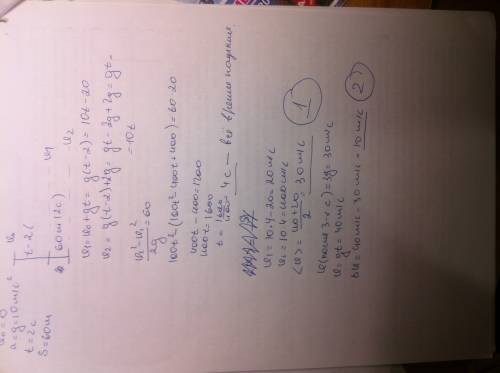 v₀=0
a=g=10м/с²
t=2c
S=60м
v₀
t-2c
60м(2c)
v₁
v₂
v₁=v₀+gt=g(t-2)=10t-20
v₂=g(t-2)+2g=gt-2g+2g=gt=
=10t
v₂²-v₁²/2g=60
100t²-(100t²-400t+400)=60·20
400t-400=1200
400t=1600
t=1600/400=4c — всё время падения
v₁=10·4-20=20м/с
v₂=10·4=40м/с
<v>=40+20/2=30м/с (1)
v(после 3-х с)=3g=30м/с
v=gt=40м/с
Δv=40м/с-30м/с=10м/с (2)